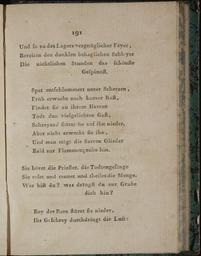 191
Und so zu des Lagers vergnüglicher Feyer,
Bereiten den dunklen behaglichen Schleyer
Die nächtlichen Stunden das schöne
Gespinnst.
Spät entschlummert unter Scherzen,
Früh erwacht nach kurzer Rast,
Findet sie an ihrem Herzen
Todt den vielgeliebten Gast,
Schreyend stürzt sie auf ihn nieder,
Aber nicht erweckt sie ihn,
Und man trägt die starren Glieder
Bald zur Flammengrube hin.
Sie höret die Priester, die Todtengesänge
Sie rast und rennet und theilet die Menge.
Wer bist du? was drängt zu der Grube
dich hin?
Bey der Bare stürzt sie nieder,
Ihr Geschrey durchdringt die Luft: